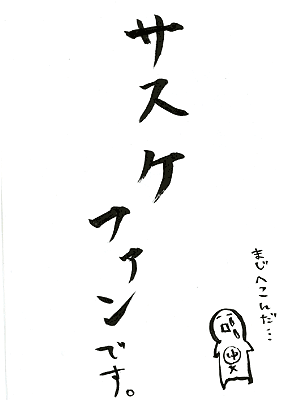 サスケ
ファンです。
まじへこんだ…
中大